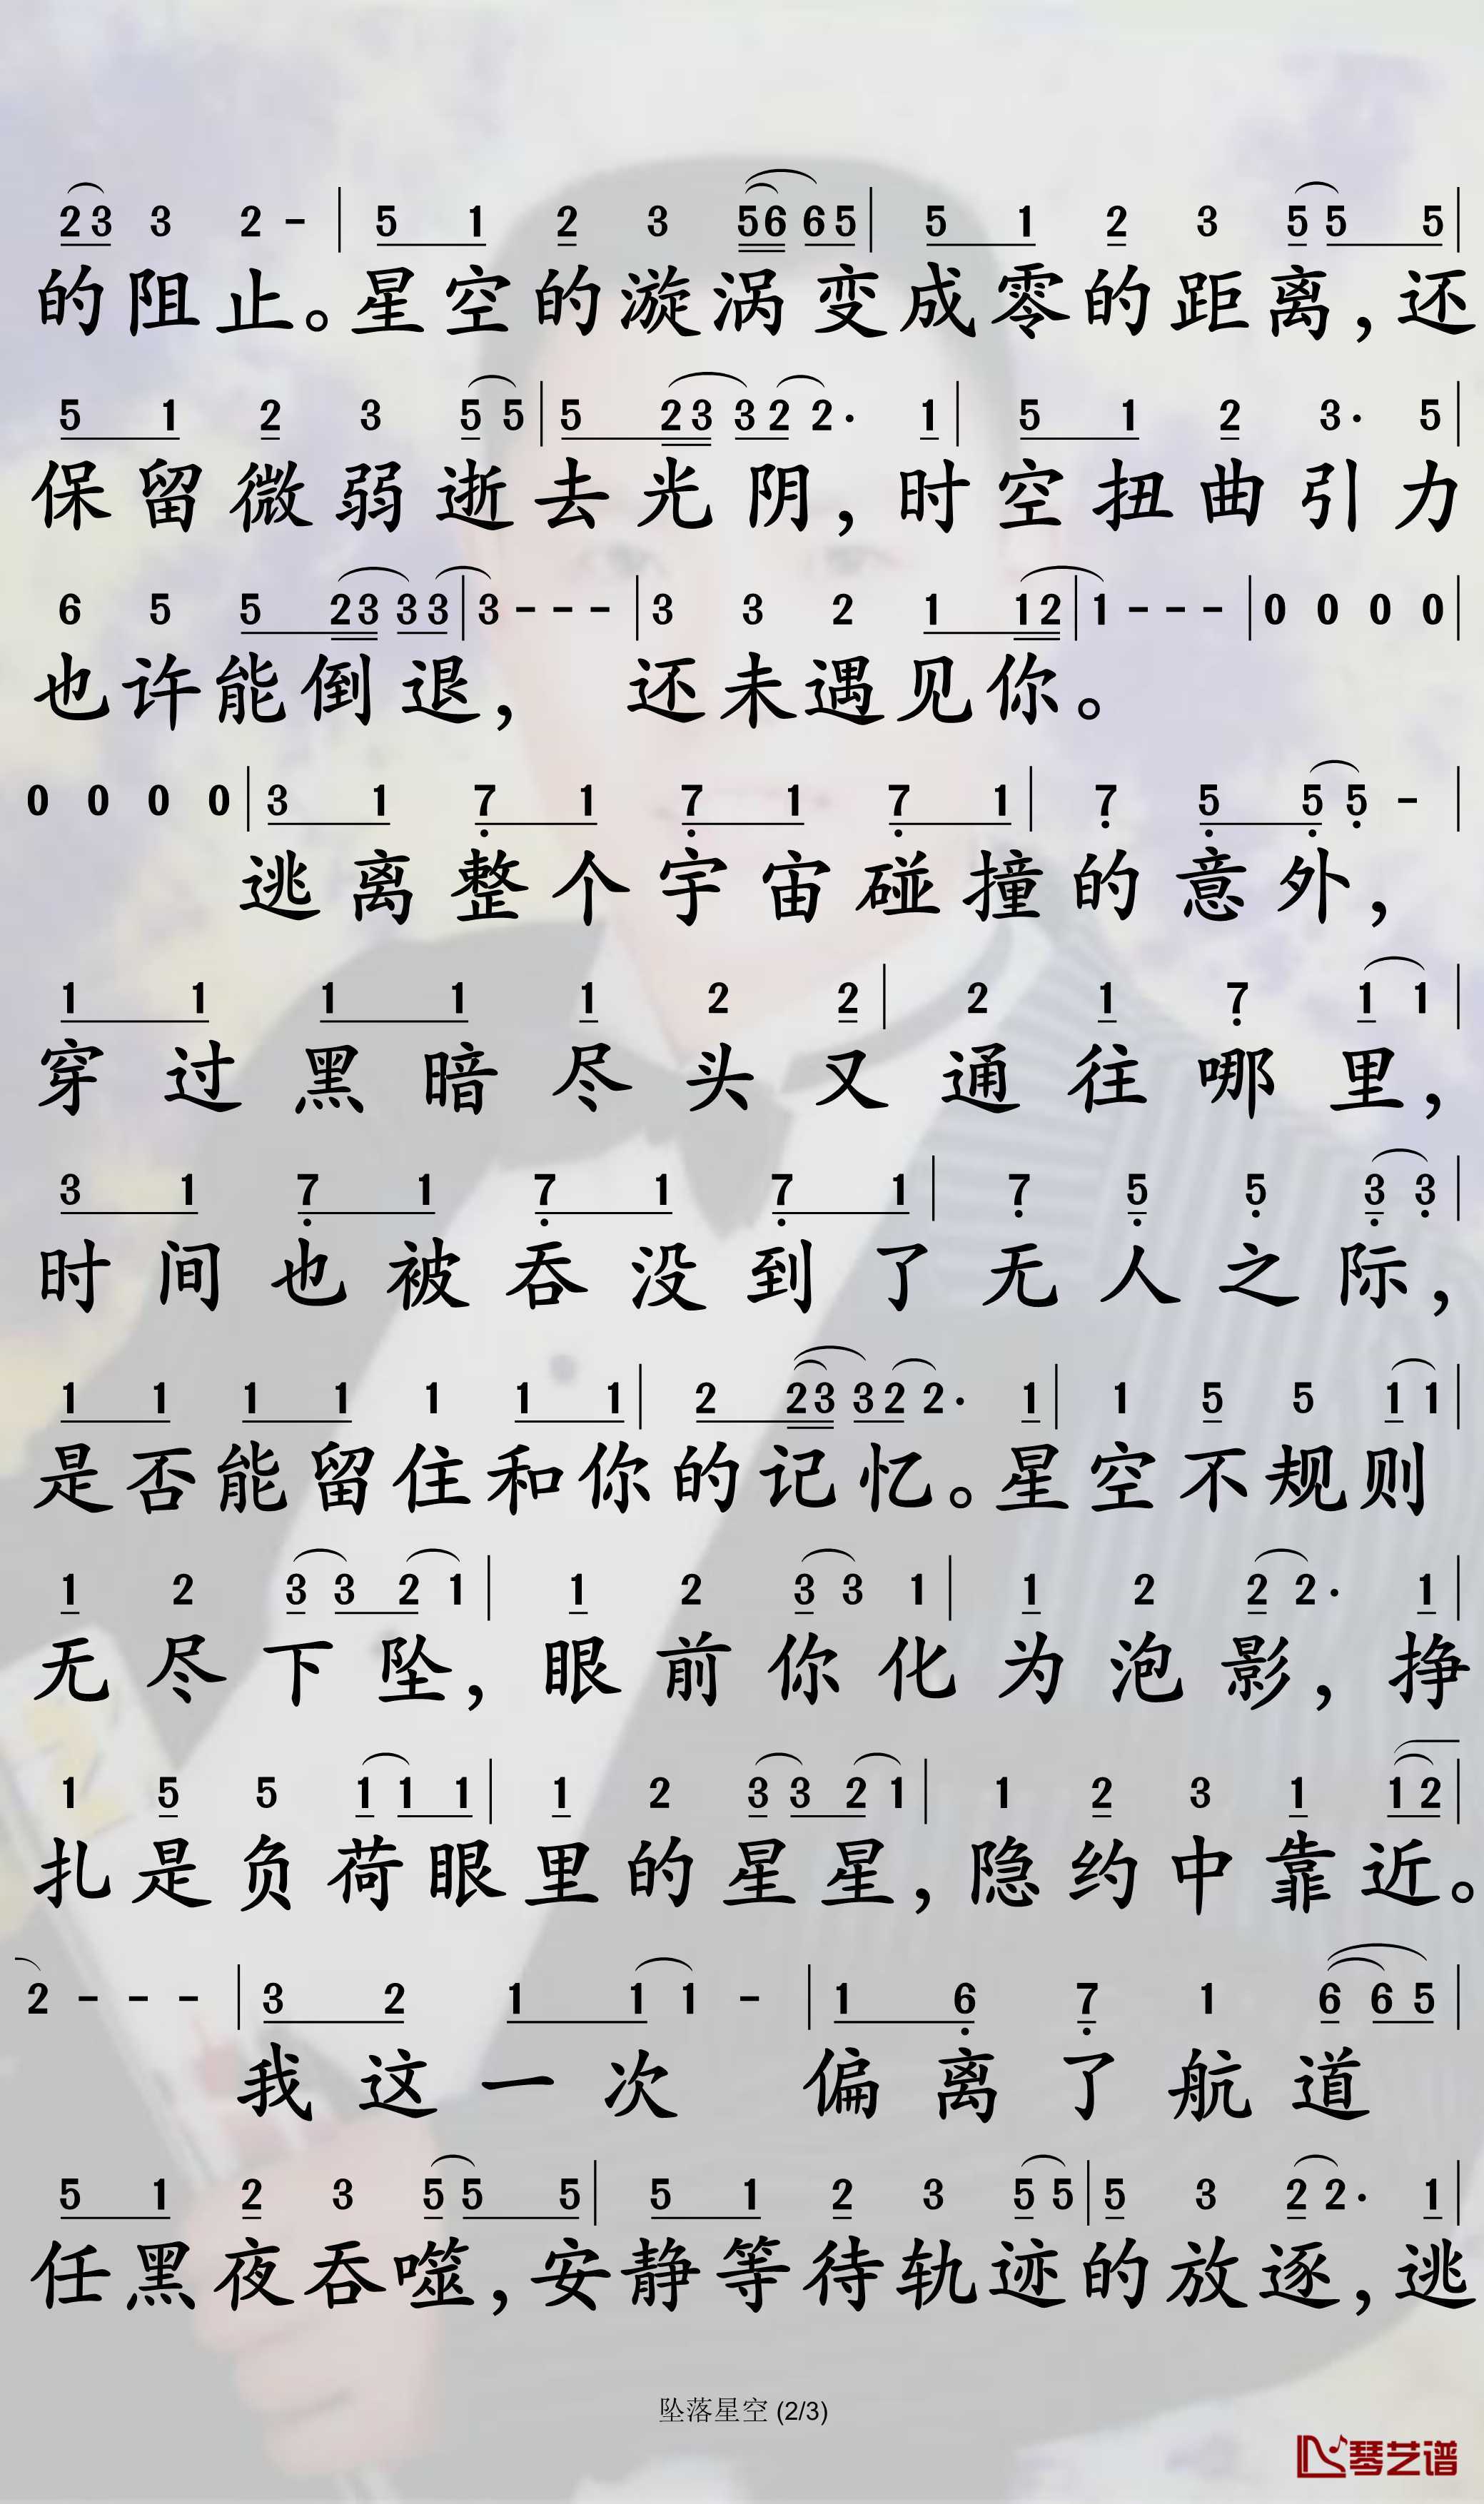 23 3 2 - | 5 1 2 3 56 65 | 5 1 2 3 5 5 5 |
的阻止。星空的漩涡变成零的距离,还
5 1 2 3 5 5 | 5 23 32 2· 1 | 5 1 2 3· 5 |
保留微弱逝去光阴,时空扭曲引力
6 5 5 23 33 | 3 - - - | 3 3 2 1 12 | 1 - - - | 0 0 0 0 |
也许能倒退,还未遇见你。
0 0 0 0 | 3 1 7 1 7 1 7 1 | 7 5 5 5 - |
逃离整个宇宙碰撞的意外,
1 1 1 1 1 2 2 | 2 1 7 1 1 |
穿过黑暗尽头又通往哪里,
3 1 7 1 7 1 7 1 | 7 5 5 3 3 |
时间也被吞没到了无人之际,
1 1 1 1 1 1 1 | 2 23 32 2· 1 | 1 5 5 1 1 |
是否能留住和你的记忆。星空不规则
1 2 3 3 2 1 | 1 2 3 3 1 | 1 2 2 2· 1 |
无尽下坠,眼前你化为泡影,挣
1 5 5 1 1 1 | 1 2 3 3 2 1 | 1 2 3 1 12 |
扎是负荷眼里的星星,隐约中靠近。
2 - - - | 3 2 1 1 1 - | 1 6 7 1 6 6 5 |
我这一次偏离了航道
5 1 2 3 5 5 5 | 5 1 2 3 5 5 | 5 3 2 2· 1 |
任黑夜吞噬,安静等待轨迹的放逐,逃
坠落星空 (2/3)
琴艺谱